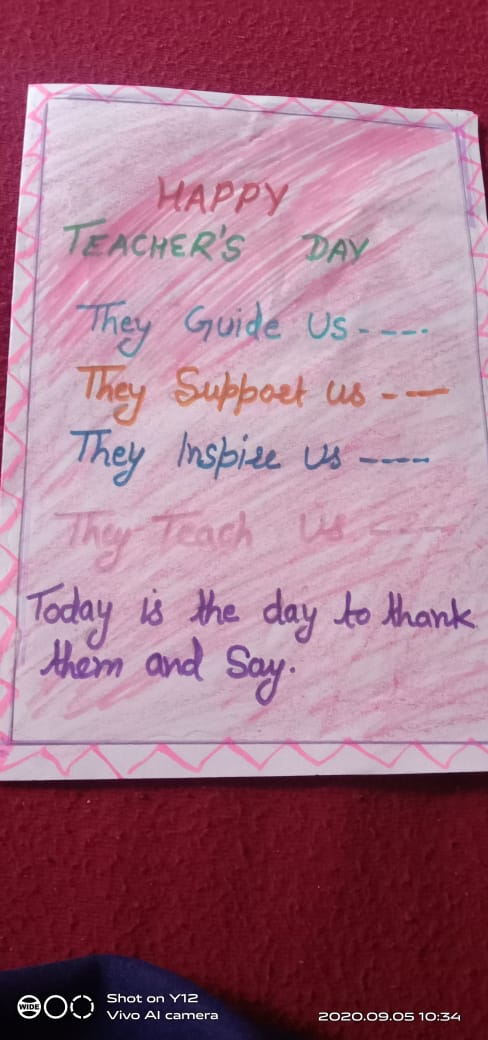 HAPPY
TEACHER'S DAY
They Guide Us-----.
They Support us - —
They Inspire us ----
They Teach Us ----
Today is the day to thank
them and Say.
WIDE
Shot on Y12
Vivo AI camera
2020.09.05 10:34